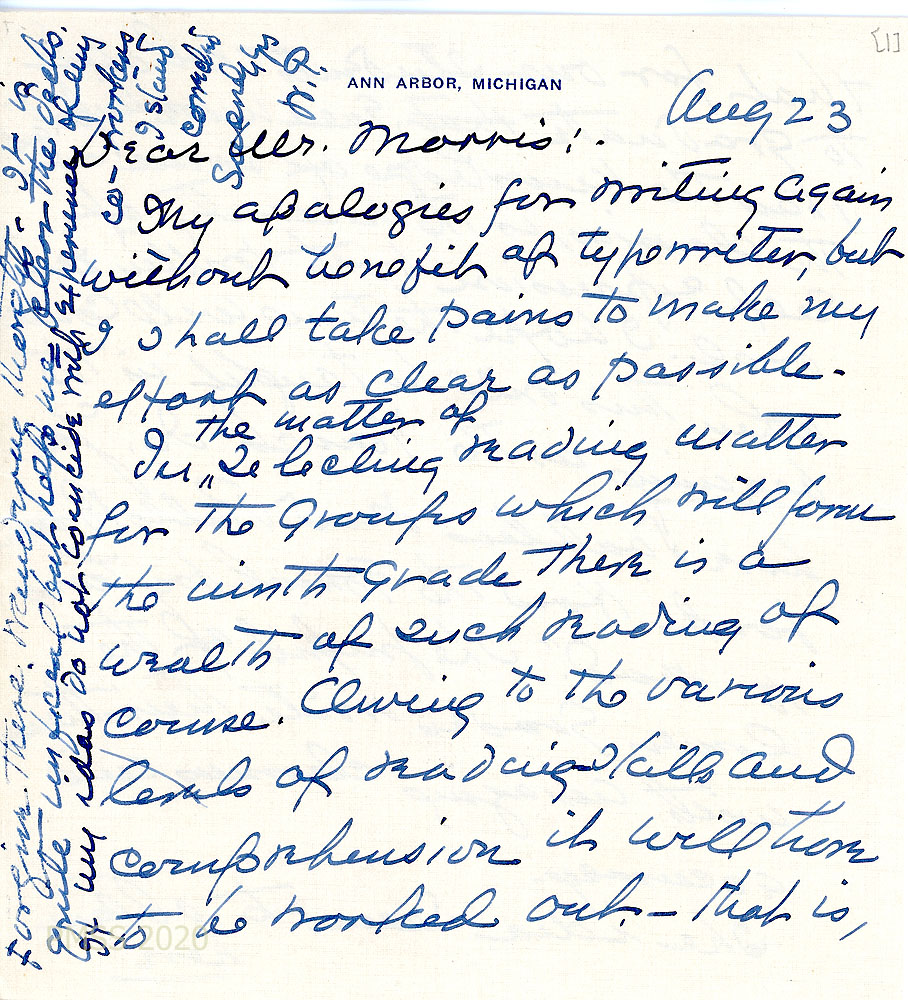 [1]
ANN ARBOR, MICHIGAN
Aug 23
Dear Mr. Morris:
My apologies for writing again
without benefit of typewriter, but
I shall take pains to make my
effort as clear as possible.
the matter of
In selecting reading matter
for the groups which will form
the ninth grade there is a
wealth of such reading of
course. Owing to the various
levels of reading skills and
comprehension it will have
to be worked out. - that is,
Forgive these meandering thoughts - It is
quite informal but helps me
if my ideas do not coincide with experience of my
co-workers
I stand
corrected
Sincerely
2020